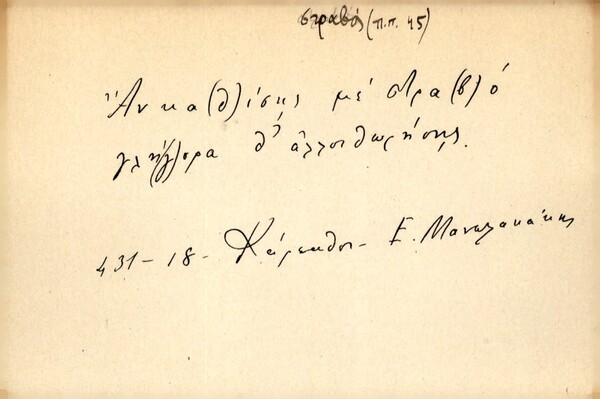 στραβός (π.π. 45)
Ἂν κα(θ)ίσῃς μέ στρα(β)ό
γλή(γ)ορα θ' ἀλλοιθωρήσῃς.
431 - 18 - Κάρπαθος - Ε. Μανωλακάκης